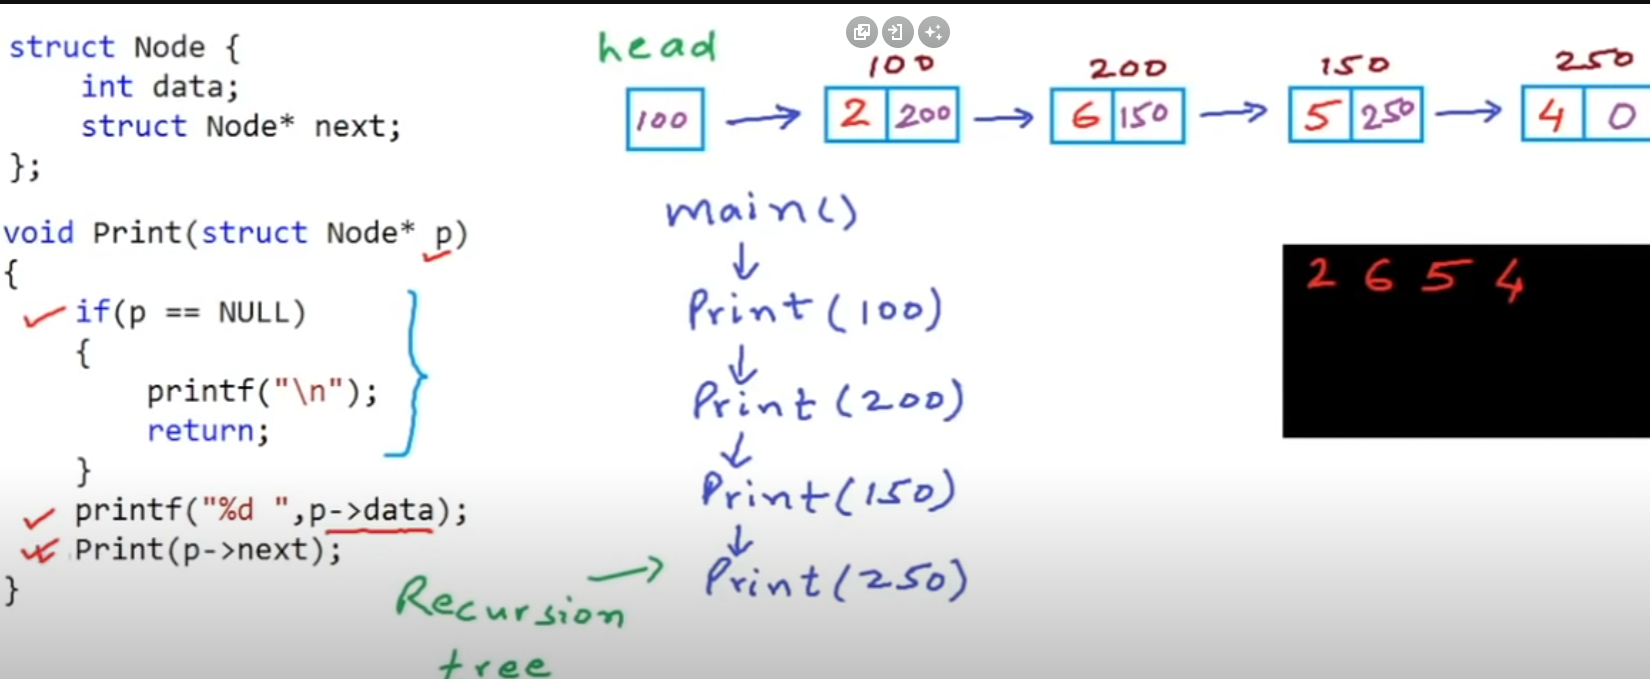 struct Node {
int data;
struct Node* next;
};
void Print(struct Node* p)
{
if(p == NULL)
{
printf("\n");
return;
}
printf("%d ",p->data);
Print(p->next);
}
head
100 200 150 250
100 2 200 6 150 5 250 4 0
main()
Print(100)
Print(200)
Print(150)
Print(250)
Recursion
tree
2 6 5 4